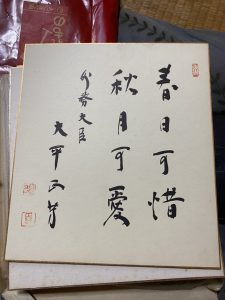 春日可惜
秋月可愛
外務大臣
大平正芳